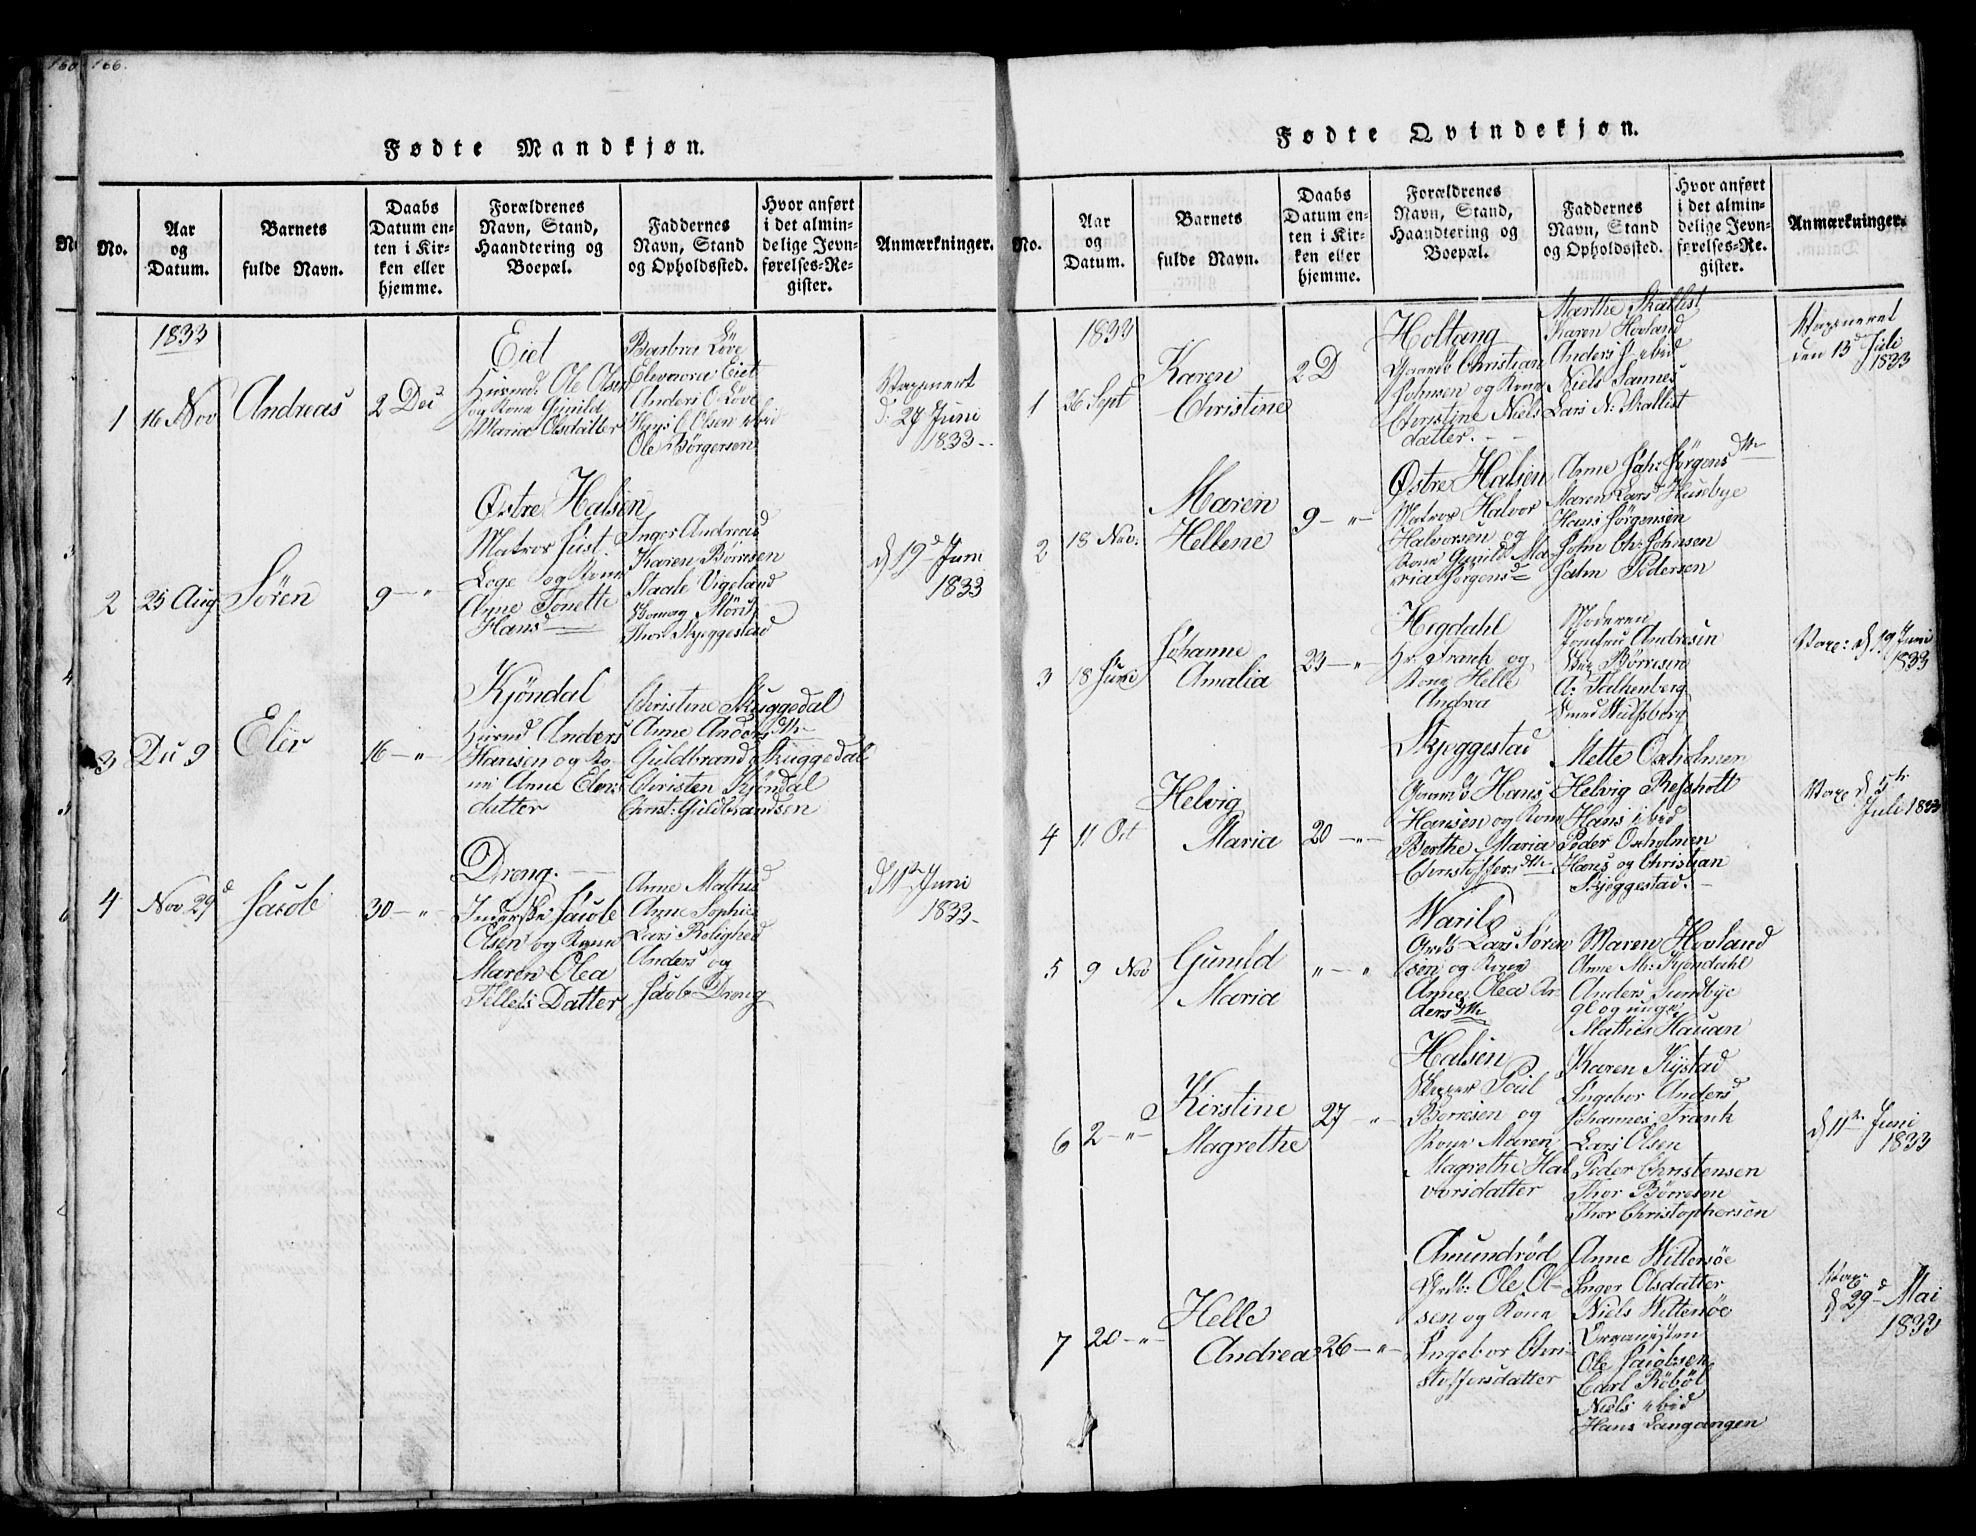 166.
Fødte Mandkjøn.
No.
Aar og Datum.
Barnets fulde Navn.
Daabs Datum enten i Kirken eller hjemme.
Forældrenes Navn, Stand, Haandtering og Boepæl.
Faddernes Navn, Stand og Opholdssted.
Hvor anført i det almindelige Jevnførelses-Register.
Anmærkninger.
1833
1
16 Nov
Andreas
2 Dec
Eid
Ole Olsen
og Kone Gunild
Maria Olsdatter
Barbra Löve
Anders O. Löve
Ole Börgersen
Vaccinert
d. 27 Juni
1833
2
25 Aug
Sören
9 — "
Østre Halsen
Matros Just
Loge og Kone
Anne Tonette
Hans d
Inger Andreas d
Karen Börresen
Staale Vigeland
Thor Skjeggestad
d 19d Juni
1833
3
Dec 9
Elev
16 — "
Kjöndal
Anders
Hansen og Ko-
ne Anne Elevs
datter
Christine Skuggedal
Anne Anders dtr
Guldbrand Skuggedal
Christen Kjöndal
Christ: Guldbrandsen
4
Nov 29d
Jacob
30 — "
Dreng.
Jacob
Olsen og Kone
Maren Olea
Tellefs Datter
Anne Mathis d
Anne Sophie
Lars Rolighed
Anders og
Jacob Dreng
d 11te Juni
1833
Fødte Qvindekjøn.
No.
Aar og Datum.
Barnets fulde Navn.
Daabs Datum enten i Kirken eller hjemme.
Forældrenes Navn, Stand, Haandtering og Boepæl.
Faddernes Navn, Stand og Opholdssted.
Hvor anført i det almindelige Jevnførelses-Register.
Anmærkninger.
1833
1
26 Sept
Karen
Christine
2 D
Holtang
Gaardb Christian
Johnsen og Kone
Christine Niels
datter.
Marthe Skallist
Karen Hovland
Anders J ibid
Niels Sannes
Lars N. Skallist
Vaccineret
den 13d Juli
1833
2
18 Nov.
Maren
Hellene
9 — "
Østre Halsen
Matros Halvor
Halvorsen og
Kone Gunild Ma-
ria Jörgens d
Anne Jah: Jörgens dtr
Maren Lars d Huseby
Hans Jörgensen
John Ch: Johnsen
John Pedersen
3
18 Juni
Johanne
Amalia
23 — "
Hegdahl
Hr. Frank og
Kone Helle
Andrea
Moderen
Jomfru Andresen
Börresen
A: Falkenberg
Smed Wulfsberg
Vacc: d 19 Juni
1833
4
11 Oct
Helvig
Maria
20 — "
Skjeggestad
Gaard b. Hans
Hansen og Kone
Berthe Maria
Christoffers dtr
Mette Oxholmen
Helvig Refsholt
Hans ibid
Peder Oxholmen
Hans og Christian
Skjeggestad.
Vacc d 5te
Juli 1833
5
9 Nov
Gunild
Maria
" — "
Warild
Grdb Lars Sören
sen og Kone
Anne Olea An-
ders dtr
Maren Hovland
Anne M: Kjöndahl
Anders Sundbye
gl og unge
Mathies Hauan
6
2 — "
Kirstine
Magrethe
27 "
Halsen
Skipper Poul
Börresen og
Kone Maren
Magrethe Hal
vorsdatter
Karen Kystad
Ingebor Anders d
Johannes Frank
Lars Olsen
Peder Christensen
Thor Börresen
Thor Christophersen
d 11te Juni
1833
7
20 — "
Helle
Andrea
26 — "
Amundröd
Grdb: Ole Ol-
sen og Kone
Ingebor Chri-
stoffersdatter
Anne Wittersöe
Inger Olsdatter
Niels Wittersöe
Organisten
Ole Jacobsen
Carl Röböl
Niels ibid
Hans Langangen
Vacc
d 29d Mai
1833